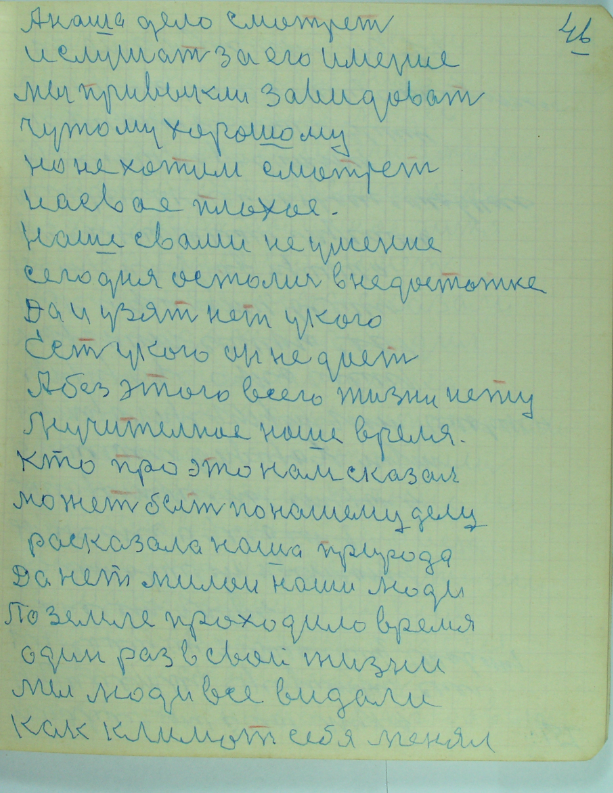 46
Анаша дело смотрет
ислушат за его имение
мы привыкли завидоват
чужому хорошому
но не хотим смотрет
насвое плохое.
Наше свами не умение
сегодня осталис в недостатке
Да и узят нет укого
Ест укого он не дает
А без этого всего жизни нету
Мучителное наше время.
Кто про это нам сказал
может быт по нашему делу
расказала наша природа
Да нет милои наши люди
По земле проходило время
один раз в свои жизни
мы люди все видали
как климат себя менял